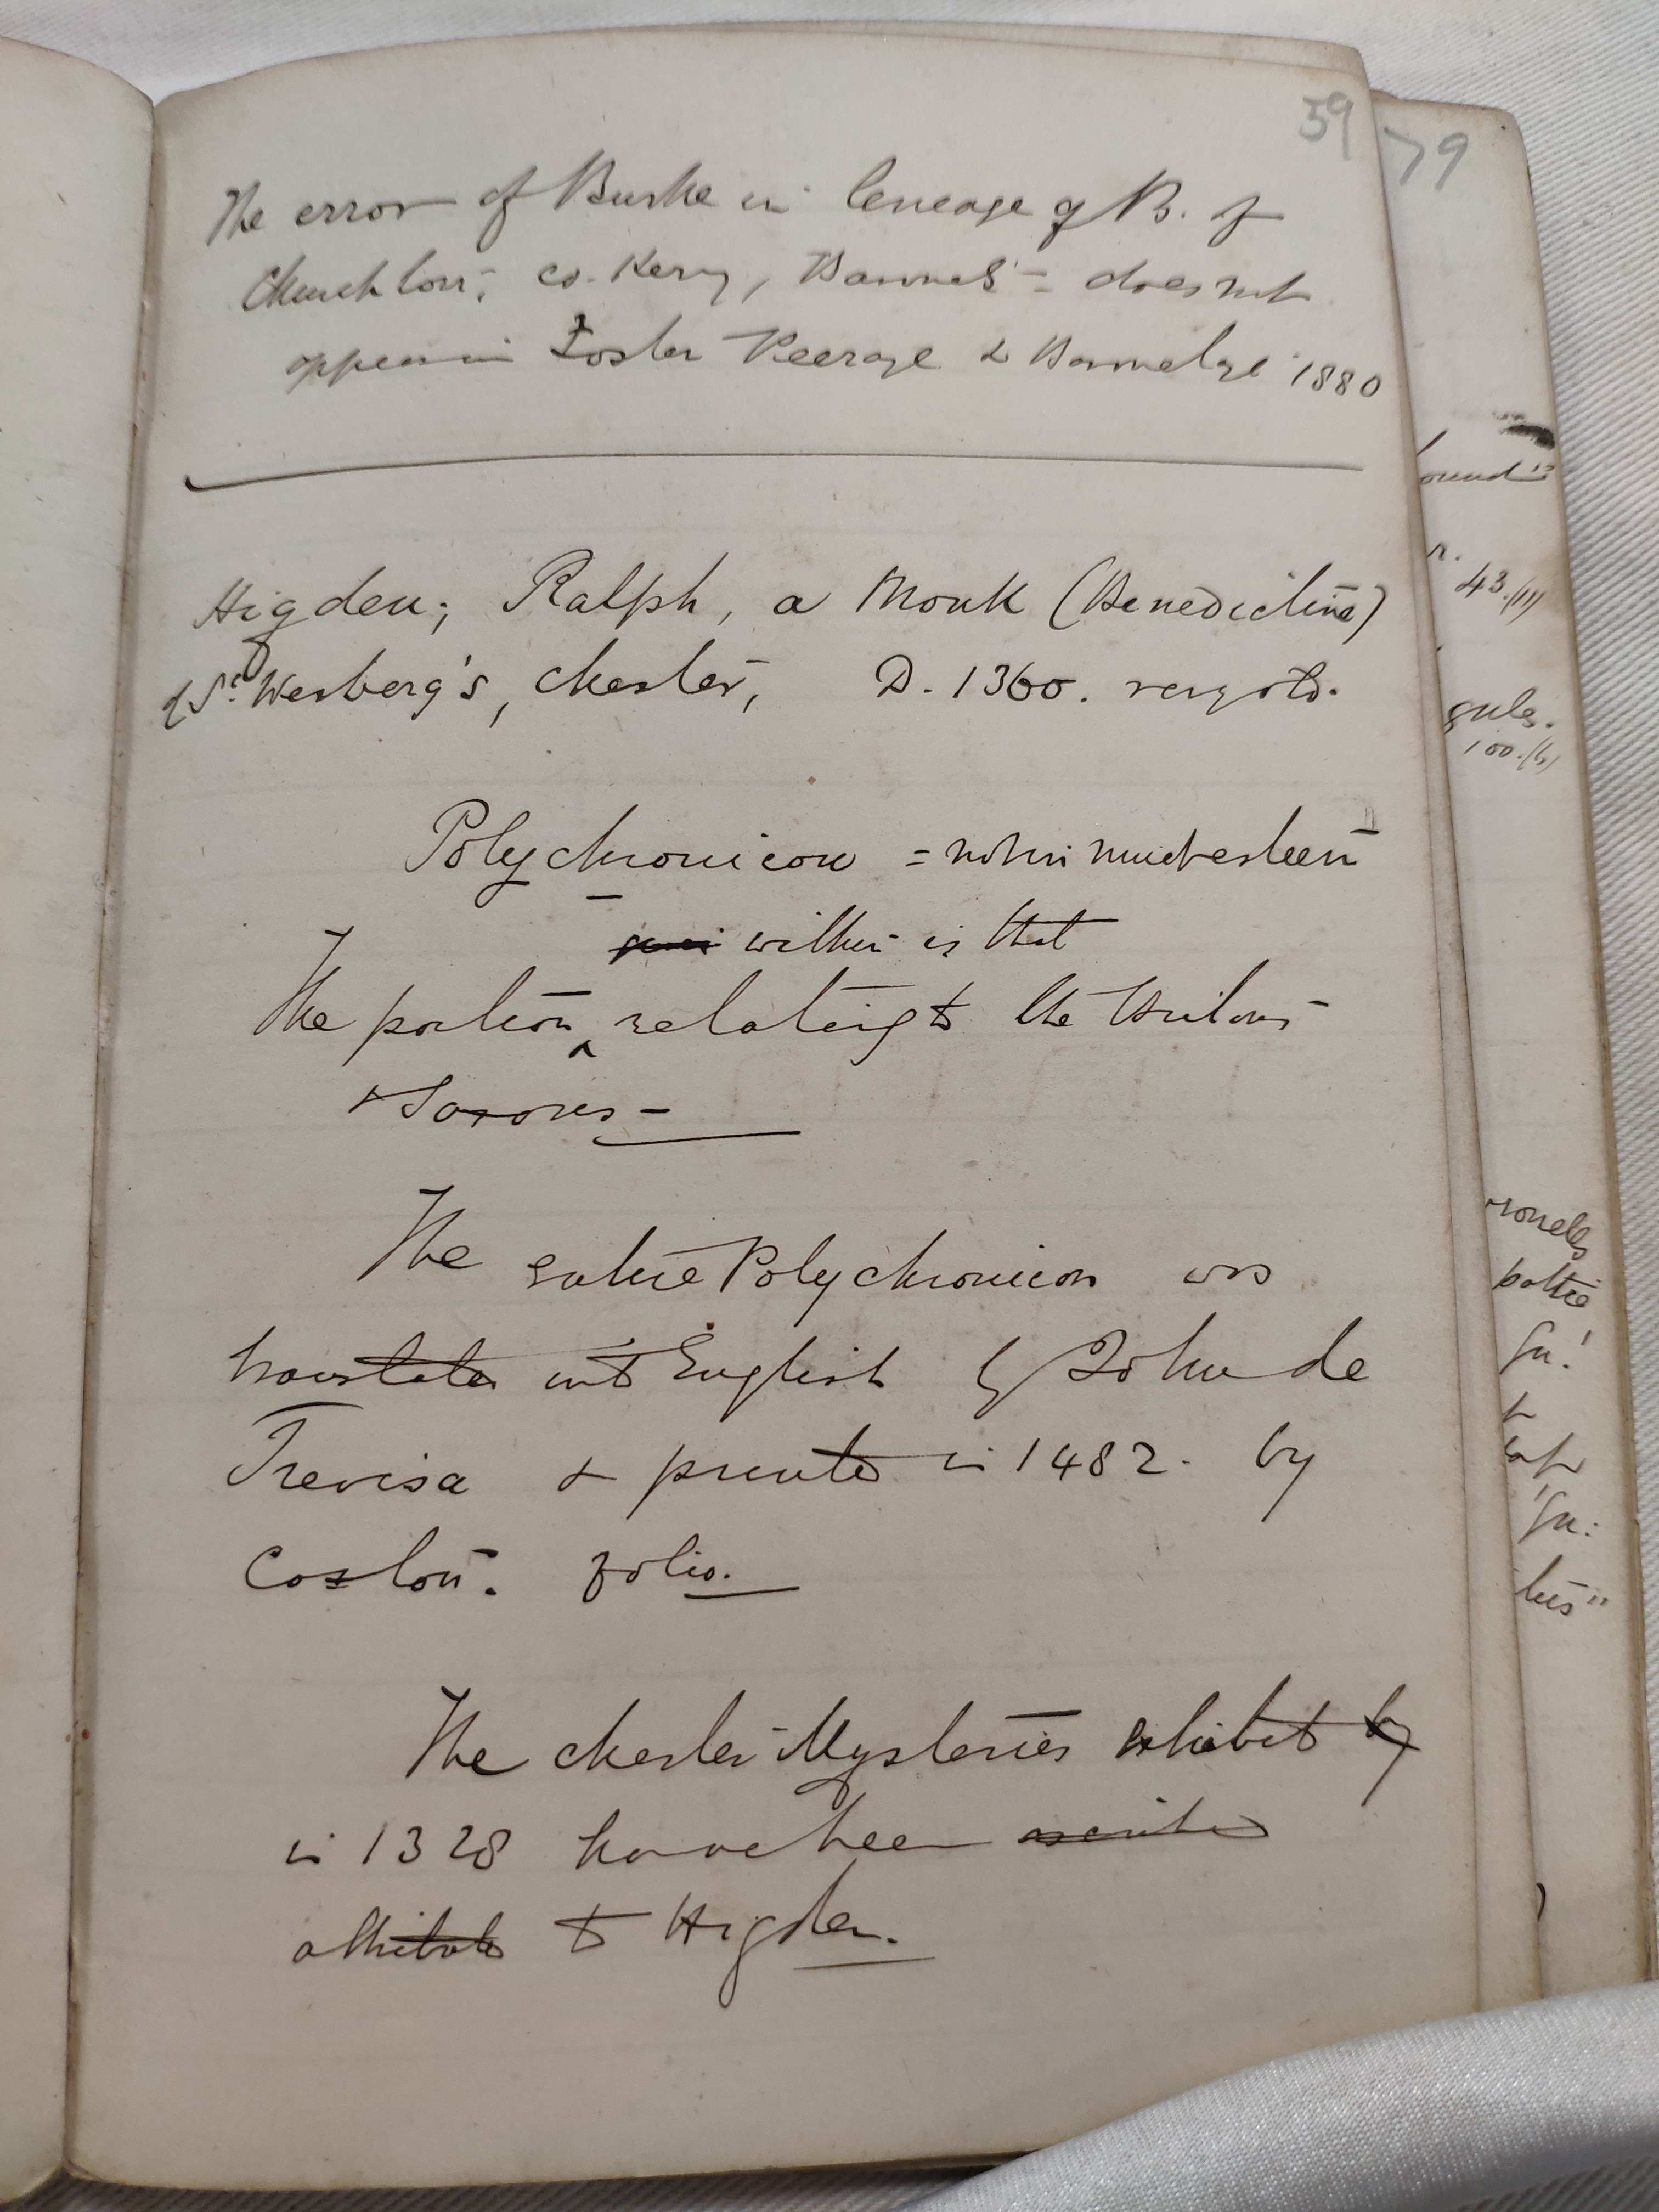 59
79
The error of Burke in lineage of B. of
Churchtown, co. Kerry, Baronets = does not
appear in Foster Peerage & Baronetage 1880
Higden, Ralph, a Monk (Benedictine)
of St. Werberg's, Chester, D. 1360. very old.
Polychronicon = not in much esteem
within is that
The portion relating to the Britons
& Saxons -
The entire Polychronicon was
translated into English by John de
Trevisa & printed in 1482. by
Caxton. folio.
The Chester Mysteries exhibited by
in 1328 have been ascribed
attributed to Higden.
ound"
43.(11)
gules.
100.(6)